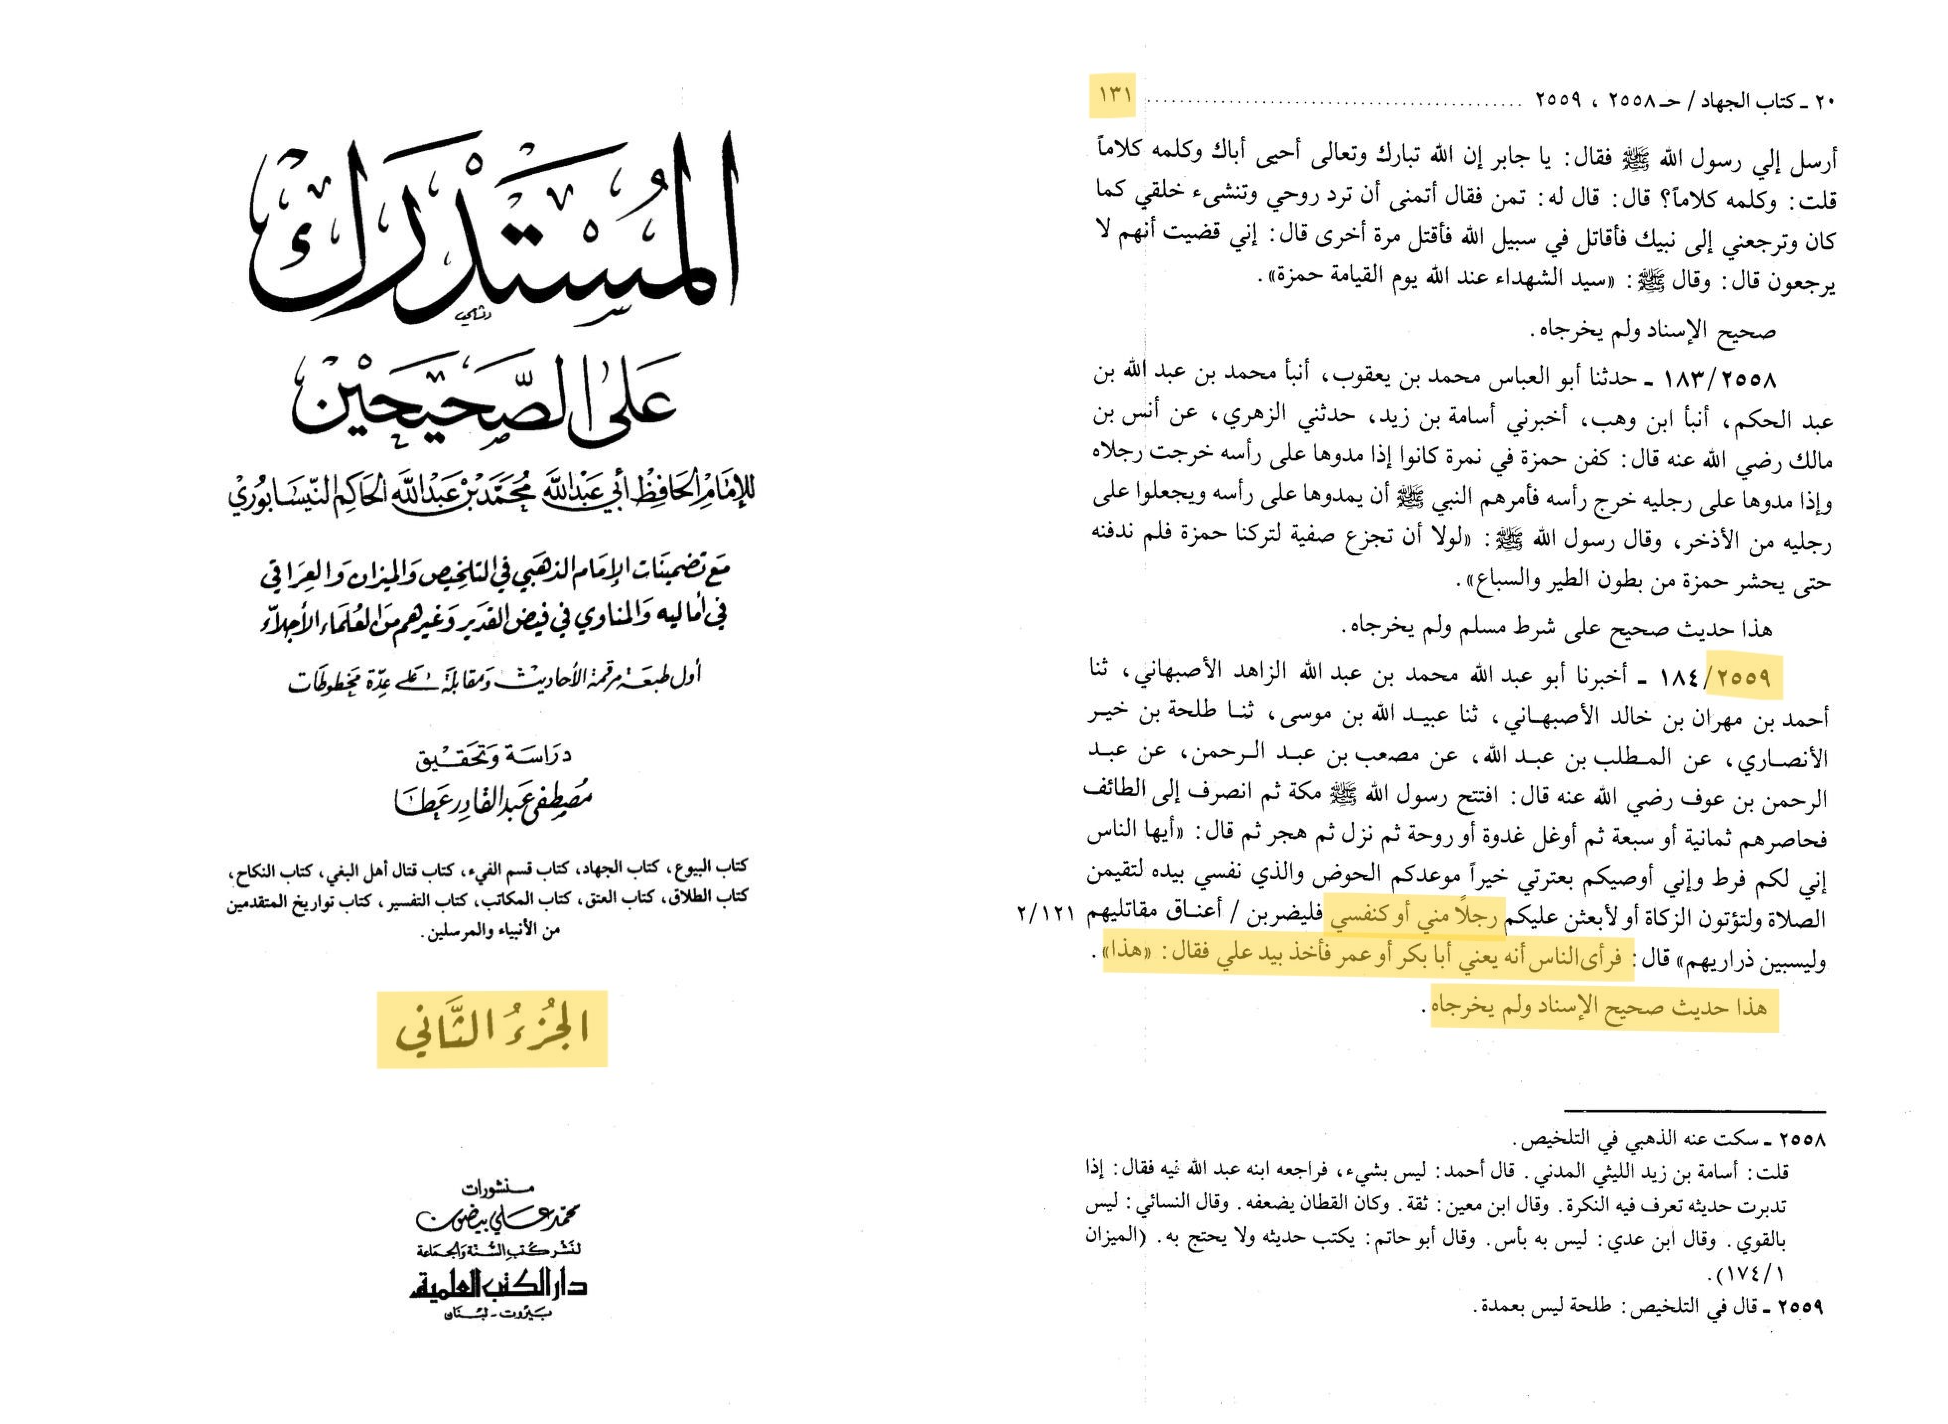 المستدرك
على الصحيحين
للإمام الحافظ أبي عبد الله محمد بن عبد الله الحاكم النيسابوري
مع تضمينات الإمام الذهبي في التلخيص والميزان والعراقي
في أماليه والمناوي في فيض القدير وغيرهم من العلماء الأجلاء
أول طبعة مرقمة الأحاديث ومقابلة على عدة مخطوطات
دراسة وتحقيق
مصطفى عبد القادر عطا
كتاب البيوع، كتاب الجهاد، كتاب قسم الفيء، كتاب قتال أهل البغي، كتاب النكاح،
كتاب الطلاق، كتاب العتق، كتاب المكاتب، كتاب التفسير، كتاب تواريخ المتقدمين
من الأنبياء والمرسلين.
الجزء الثاني
منشورات
محمد علي بيضون
لنشر كتب السنة والجماعة
دار الكتب العلمية
بيروت - لبنان
٢٠ ـ كتاب الجهاد / حـ ٢٥٥٨ ، ٢٥٥٩ ........................................ ١٣١
أرسل إلي رسول الله ﷺ فقال: يا جابر إن الله تبارك وتعالى أحيى أباك وكلمه كلاماً
قلت: وكلمه كلاماً؟ قال: قال له: تمن فقال أتمنى أن ترد روحي وتنشىء خلقي كما
كان وترجعني إلى نبيك فأقاتل في سبيل الله فأقتل مرة أخرى قال: إني قضيت أنهم لا
يرجعون قال: وقال ﷺ: «سيد الشهداء عند الله يوم القيامة حمزة».
صحيح الإسناد ولم يخرجاه.
١٨٣/٢٥٥٨ ـ حدثنا أبو العباس محمد بن يعقوب، أنبأ محمد بن عبد الله بن
عبد الحكم، أنبأ ابن وهب، أخبرني أسامة بن زيد، حدثني الزهري، عن أنس بن
مالك رضي الله عنه قال: كفن حمزة في نمرة كانوا إذا مدوها على رأسه خرجت رجلاه
وإذا مدوها على رجليه خرج رأسه فأمرهم النبي ﷺ أن يمدوها على رأسه ويجعلوا على
رجليه من الأذخر، وقال رسول الله ﷺ: «لولا أن تجزع صفية لتركنا حمزة فلم ندفنه
حتى يحشر حمزة من بطون الطير والسباع».
هذا حديث صحيح على شرط مسلم ولم يخرجاه.
١٨٤/٢٥٥٩ ـ أخبرنا أبو عبد الله محمد بن عبد الله الزاهد الأصبهاني، ثنا
أحمد بن مهران بن خالد الأصبهاني، ثنا عبيد الله بن موسى، ثنا طلحة بن خير
الأنصاري، عن المطلب بن عبد الله، عن مصعب بن عبد الرحمن، عن عبد
الرحمن بن عوف رضي الله عنه قال: افتتح رسول الله ﷺ مكة ثم انصرف إلى الطائف
فحاصرهم ثمانية أو سبعة ثم أوغل غدوة أو روحة ثم نزل ثم هجر ثم قال: «أيها الناس
إني لكم فرط وإني أوصيكم بعترتي خيراً موعدكم الحوض والذي نفسي بيده لتقيمن
الصلاة ولتؤتون الزكاة أو لأبعثن عليكم رجلاً مني أو كنفسي فليضربن / أعناق مقاتليهم ٢/١٢١
وليسبين ذراريهم» قال: فرأى الناس أنه يعني أبا بكر أو عمر فأخذ بيد علي فقال: «هذا».
هذا حديث صحيح الإسناد ولم يخرجاه.
٢٥٥٨ ـ سكت عنه الذهبي في التلخيص.
قلت: أسامة بن زيد الليثي المدني. قال أحمد: ليس بشيء، فراجعه ابنه عبد الله فيه فقال: إذا
تدبرت حديثه تعرف فيه النكرة. وقال ابن معين: ثقة. وكان القطان يضعفه. وقال النسائي: ليس
بالقوي. وقال ابن عدي: ليس به بأس. وقال أبو حاتم: يكتب حديثه ولا يحتج به. (الميزان
١٧٤/١).
٢٥٥٩ ـ قال في التلخيص: طلحة ليس بعمدة.